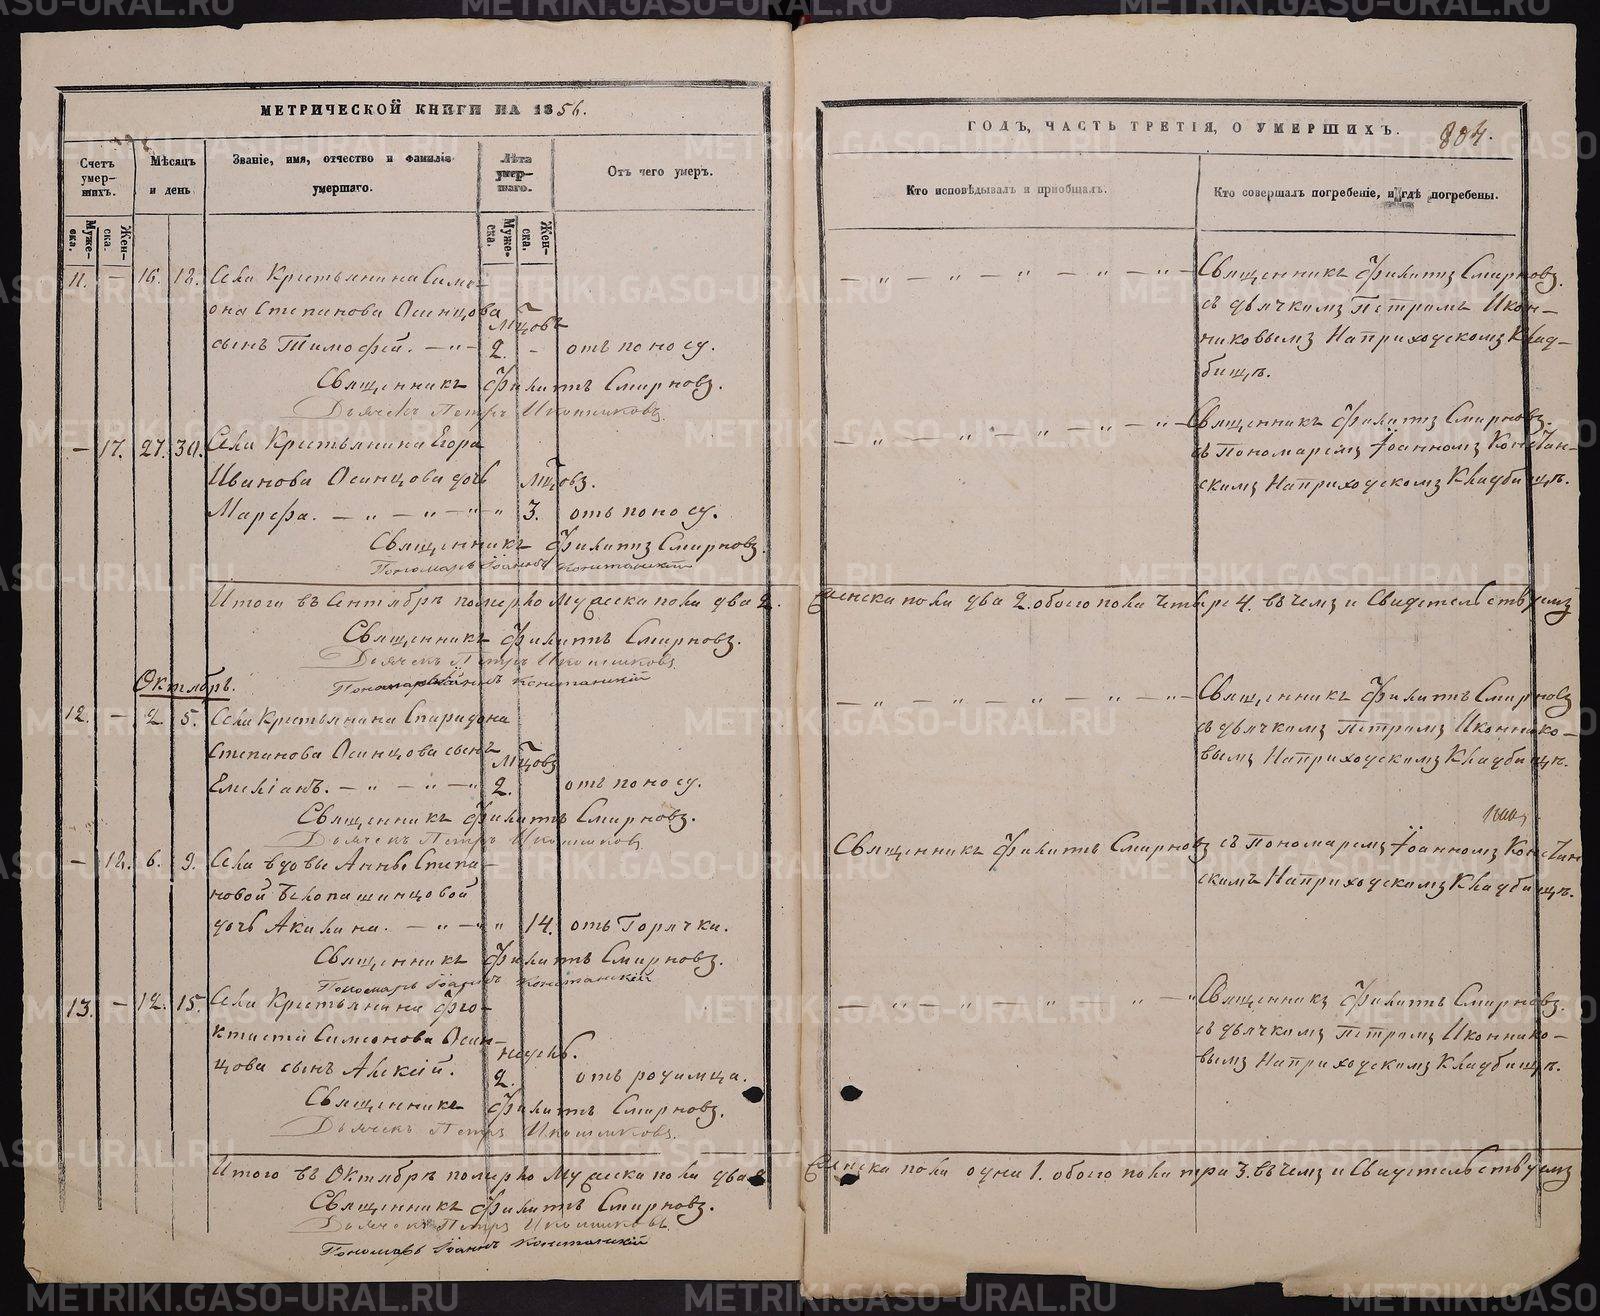 МЕТРИЧЕСКОЙ КНИГИ НА 1856.
Счетъ умер-шихъ.
Мѣсяцъ и день
Званіе, имя, отчество и фамилія умершаго.
Лѣта умер-шаго.
Отъ чего умеръ.
Муже-ска.
Жен-ска.
Муже-ска.
Жен-ска.
11. — 16. 18. Села Крестьянина Симе-
она Степанова Осинцова
мцовъ
сынъ Тимофей. — „ — 2. - отъ поносу.
Священникъ Филиппъ Смирновъ.
Дьячекъ Петръ Иконниковъ.
— 17. 27. 30. Села Крестьянина Егора
Иванова Осинцова дочь мцовъ.
Марфа. — „ — „ — „ „ 3. отъ поносу.
Священникъ Филиппъ Смирновъ.
Пономарь Іоаннъ Констанскій
Итого въ Сентябрѣ померло Мужеска пола два 2.
Священникъ Филиппъ Смирновъ.
Дьячекъ Петръ Иконниковъ.
Пономарь Іоаннъ Констанскій
Октябрь.
12. — 2. 5. Села Крестьянина Спиридона
Степанова Осинцова сынъ
мцовъ
Емеліанъ. — „ — „ — „ 2. отъ поносу.
Священникъ Филиппъ Смирновъ.
Дьячекъ Петръ Иконниковъ
— 18. 6. 9. Села вдовы Анны Степа-
новой Бѣлопашинцовой
дочь Акилина. — „ — „ „ 14. отъ Горячки.
Священникъ Филиппъ Смирновъ.
Пономарь Іоаннъ Констанскій
13. — 12. 15. Села Крестьянина Фео-
ктиста Симеонова Осин-
недель.
цова сынъ Алексій. 2. отъ родимца.
Священникъ Филиппъ Смирновъ.
Дьячекъ Петръ Иконниковъ.
Итого въ Октябрѣ померло Мужеска пола два 2
Священникъ Филиппъ Смирновъ.
Дьячекъ Петръ Иконниковъ.
Пономарь Іоаннъ Констанскій
ГОДЪ, ЧАСТЬ ТРЕТІЯ, О УМЕРШИХЪ. 804.
Кто исповѣдывалъ и пріобщалъ.
Кто совершалъ погребеніе, и гдѣ погребены.
— „ — „ — „ — „ — „ — Священникъ Филиппъ Смирновъ.
съ дьячкомъ Петромъ Икон-
никовымъ На приходскомъ Клад-
бищѣ.
— „ — „ — „ — „ — „ — Священникъ Филиппъ Смирновъ.
съ Пономаремъ Іоанномъ Констан-
скимъ На приходскомъ Кладбищѣ.
Женска пола два 2. обоего пола четыре 4. въ чемъ и Свидетельствуемъ
— „ — „ — „ — „ — „ — Священникъ Филиппъ Смирновъ
съ дьячкомъ Петромъ Иконнико-
вымъ На приходскомъ Кладбищѣ.
Священникъ Филиппъ Смирновъ съ Пономаремъ Іоанномъ Констан
скимъ На приходскомъ Кладбищѣ.
— „ — „ — „ „ — „ Священникъ Филиппъ Смирновъ.
съ дьячкомъ Петромъ Иконнико-
вымъ На приходскомъ Кладбищѣ.
Женска пола одна 1. обоего пола три 3. въ чемъ и Свидетельствуемъ
METRIKI.GASO-URAL.RU